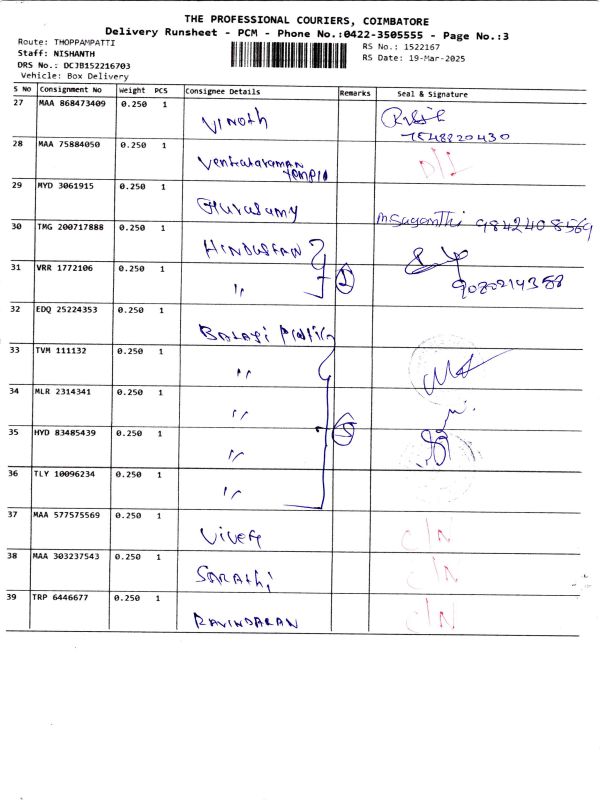 THE PROFESSIONAL COURIERS, COIMBATORE
Delivery Runsheet - PCM - Phone No.:0422-3505555 - Page No.:3
Route: THOPPAMPATTI
Staff: NISHANTH
DRS No.: DCJB152216703
Vehicle: Box Delivery
RS No.: 1522167
RS Date: 19-Mar-2025
S No Consignment No Weight PCS Consignee Details Remarks Seal & Signature
27 MAA 868473409 0.250 1 Vinoth
7548820430
28 MAA 75884050 0.250 1 Venkataraman D/L
29 MYD 3061915 0.250 1 Gurusamy 9842408569
30 TMG 200717888 0.250 1 HINDUSTAN
31 VRR 1772106 0.250 1 〃 9080214358
32 EDQ 25224353 0.250 1 BALAJI
33 TVM 111132 0.250 1 〃
34 MLR 2314341 0.250 1 〃
35 HYD 83485439 0.250 1 〃 5
36 TLY 10096234 0.250 1 〃
37 MAA 577575569 0.250 1 Vivek C/N
38 MAA 303237543 0.250 1 SARAthi C/N
39 TRP 6446677 0.250 1 RAVINDARAN C/N